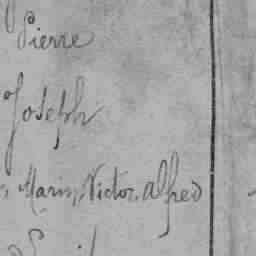 Pierre
Joseph
, Maris, Victor, alfred